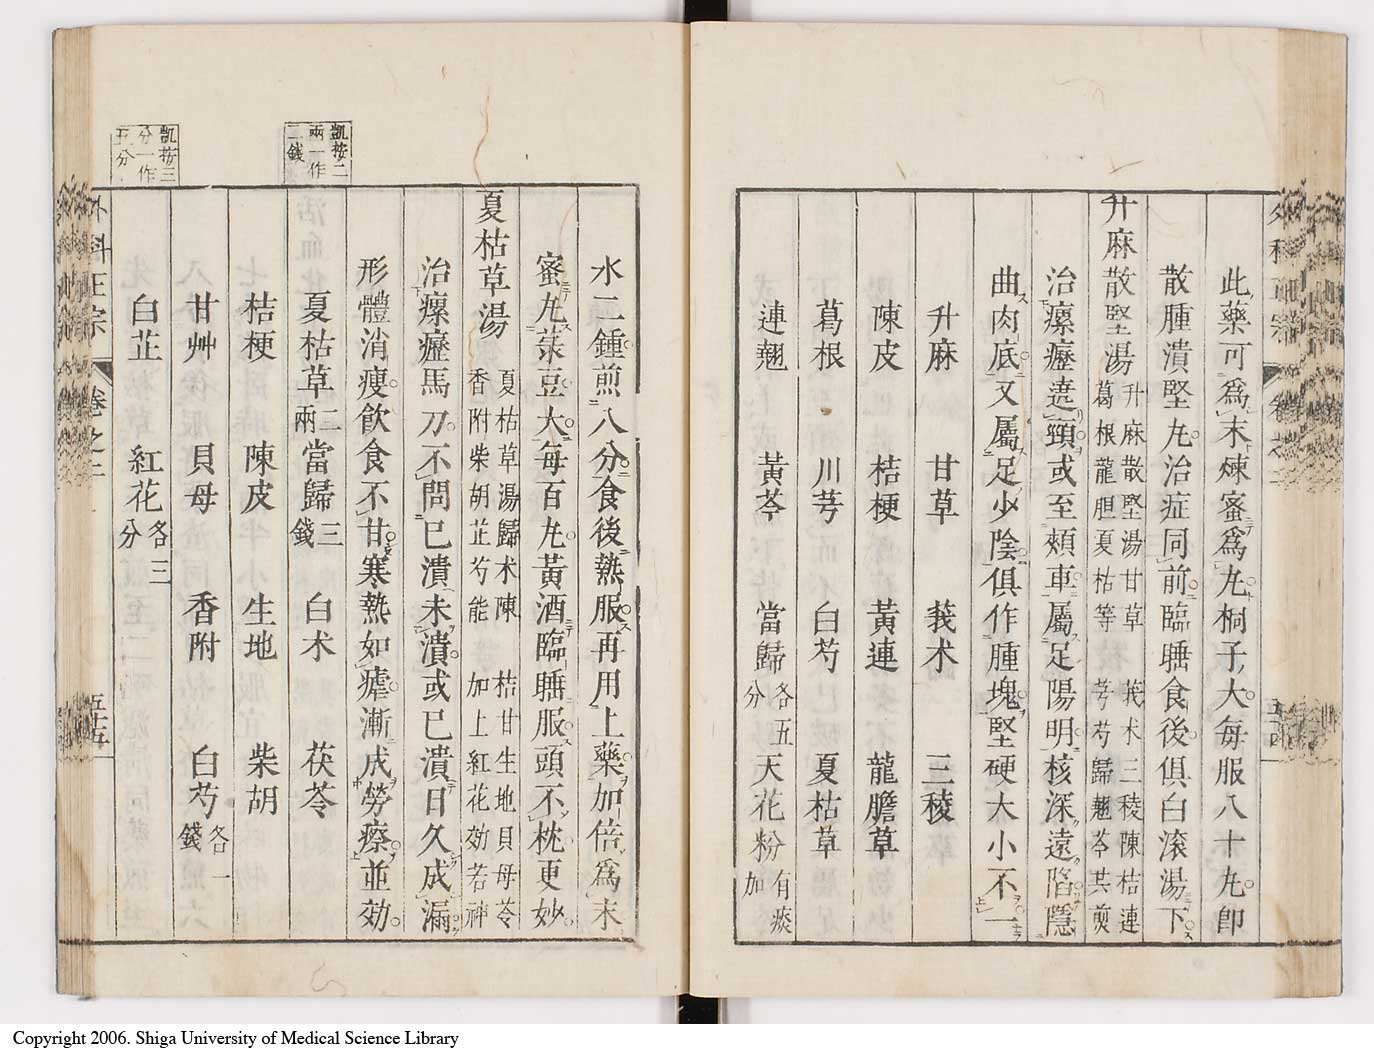 此藥可爲末煉蜜爲丸桐子大每服八十丸卽
散腫潰堅丸治症同前臨睡食後俱白滾湯下
升麻散堅湯 升麻散堅湯甘草 莪朮三稜陳桔連
葛根龍胆夏枯等 芎芍歸翹芩共煎
治瘰癧遶頸或至頰車屬足陽明核深遠陷隱
曲肉底又屬足少陰俱作腫塊堅硬大小不一
升麻 甘草 莪朮 三稜
陳皮 桔梗 黃連 龍膽草
葛根 川芎 白芍 夏枯草
連翹 黃芩 當歸各五分 天花粉有痰加
水二鍾煎八分食後熱服再用上藥加倍爲末
蜜丸菉豆大每百丸黃酒臨睡服頭不枕更妙
夏枯草湯 夏枯草湯歸朮陳 桔甘生地貝母苓
香附柴胡芷芍能 加上紅花効若神
治瘰癧馬刀不問已潰未潰或已潰日久成漏
形體消瘦飮食不甘寒熱如瘧漸成勞瘵並効
夏枯草二兩 當歸三錢 白朮 茯苓
桔梗 陳皮 生地 柴胡
甘艸 貝母 香附 白芍各一錢
白芷 紅花各三分
外科正宗 卷之二 五十五
凱按二
兩一作
二錢
凱按三
分一作
五分
Copyright 2006. Shiga University of Medical Science Library